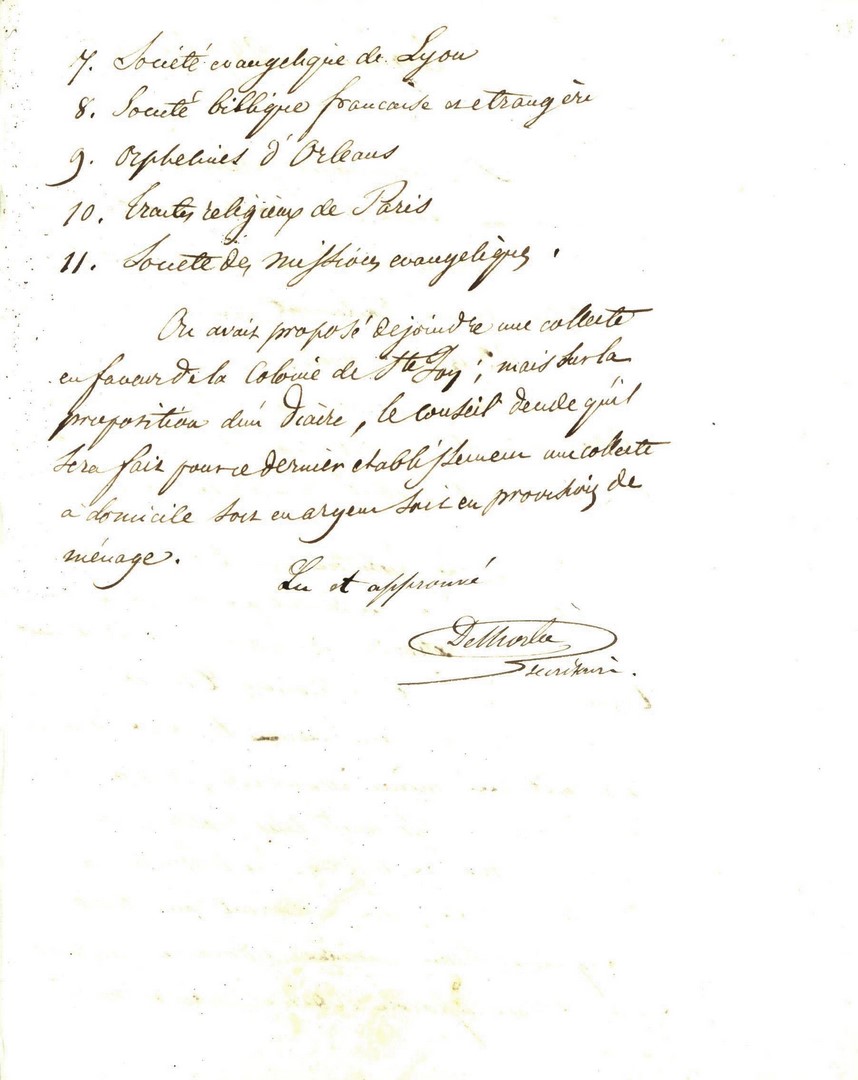 7. Société evangelique de Lyon
8. Société biblique française et etrangère
9. Orphelines d'Orléans
10. Traités religieux de Paris
11. Société des missions evangeliques.
On avait proposé de joindre une collecte
en faveur de la Colonie de Ste Foy; mais sur la
proposition d'un Diacre, le conseil decide qu'il
sera fait pour ce dernier etablissement une collecte
à domicile soit en argent soit en provisions de
ménage.
Lu et approuvé
secrétaire.